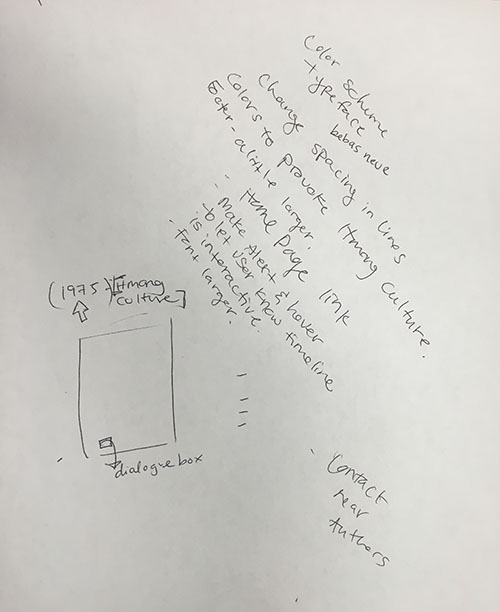 Color scheme
+ typeface
bebas neue
Change spacing in lines
Colors to provoke Hmong Culture.
Footer - a little larger.
- Home Page link
- Make Alert & hover
to let user know timeline
is interactive.
- Font larger.
(1975 - [Hmong
Culture]
dialogue box
- Contact
near
Authors